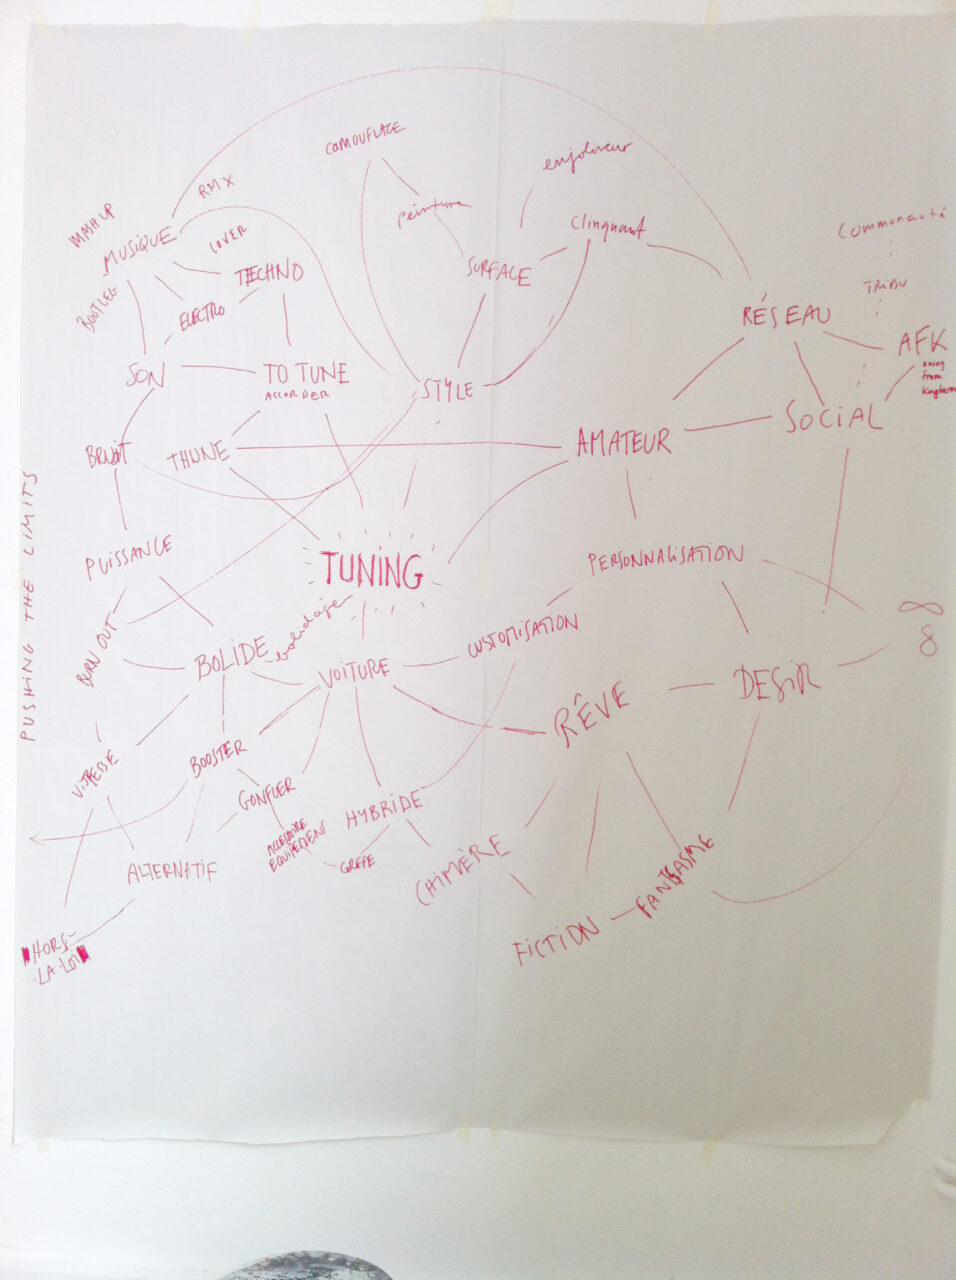 CAMOUFLAGE
enjoliveur
RMX
peinture
Clinquant
MASHUP
MUSIQUE
COVER
TECHNO
SURFACE
Communauté
TRIBU
BOOTLEG
ELECTRO
RÉSEAU
AFK
away
from
SON
TO TUNE
ACCORDER
STYLE
SOCIAL
BRUIT
THUNE
AMATEUR
PUSHING THE LIMITS
PUISSANCE
TUNING
PERSONNALISATION
BURN OUT
BOLIDE
bolidage
VOITURE
CUSTOMISATION
∞
8
RÊVE
DESIR
VITESSE
BOOSTER
GONFLER
HYBRIDE
ACCESSOIRE
EQUIPEMENT
GREFE
ALTERNATIF
CHIMÈRE
FANTASME
FICTION
HORS-
-LA-LOI